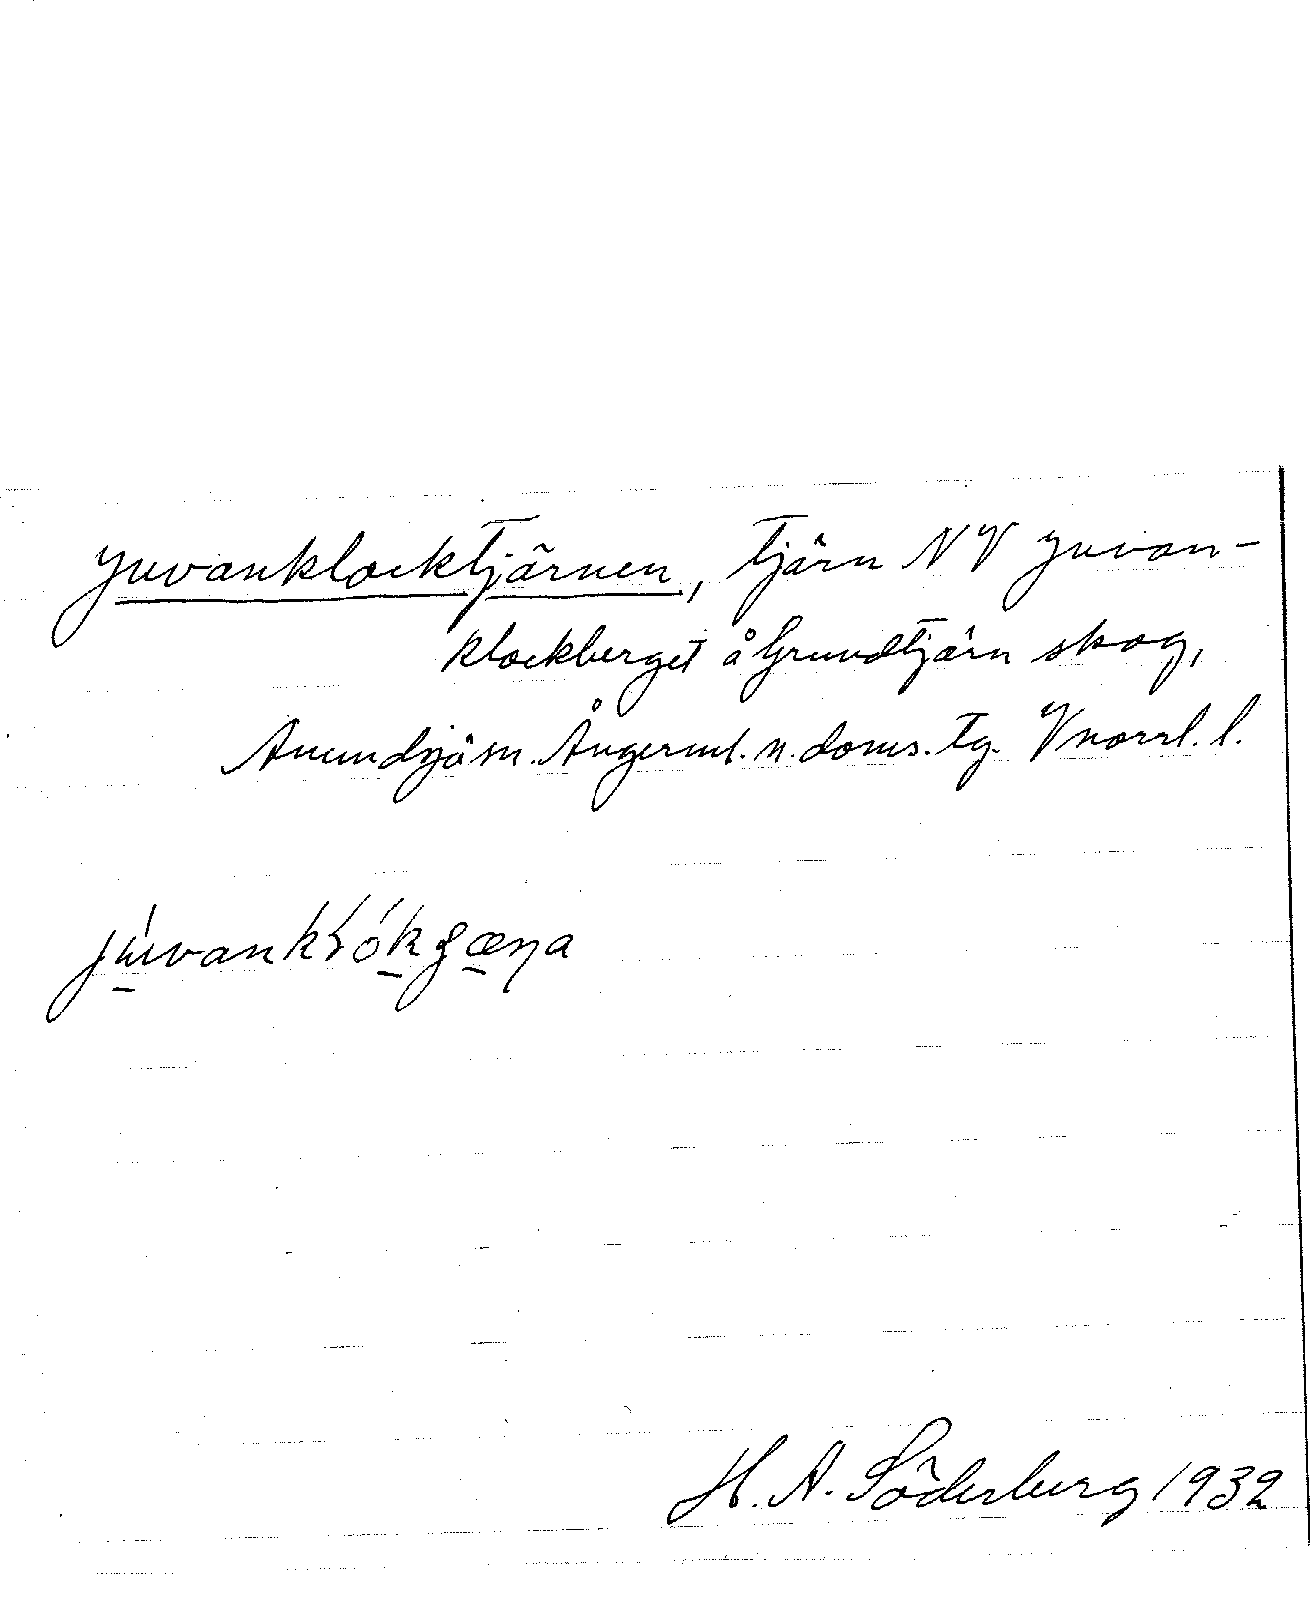 Juvanklocktjärnen, tjärn NV Juvan-
klockberget å Grundtjärn skog,
Anundsjö sn. Ångerml. n. doms. tg. Vnorrl. l.
H. A. Söderberg 1932